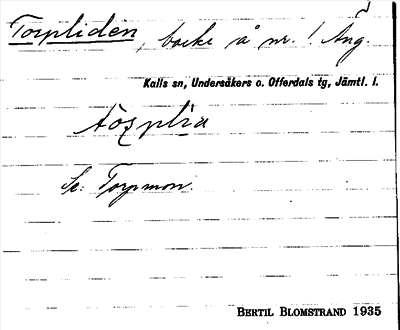 Torpliden, backe å nr. 1 Äng.
Kalls sn, Undersåkers o. Offerdals tg, Jämtl. l.
Se: Torpmon
BERTIL BLOMSTRAND 1935